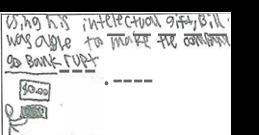 Using his intelectual gift, Bill
was able to make the company
go Bankrupt
$0.00